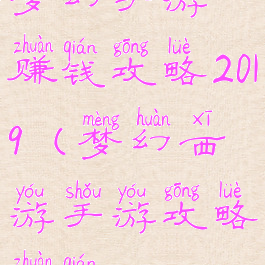 梦幻手游
zhuàn qián gōng lüè
赚钱攻略201
mèng huàn xī
9（梦幻西
yóu shǒu yóu gōng lüè
游手游攻略
zhuàn qián